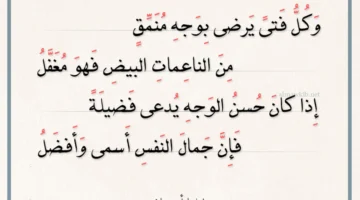 وَكُلُّ فَتىً يَرضى بِوَجهٍ مُنَمَّقٍ
مِنَ الناعِماتِ البيضِ فَهوَ مُغَفَّلُ
إِذا كانَ حُسنُ الوَجهِ يُدعى فَضيلَةً
فَإِنَّ جَمالَ النَفسِ أَسمى وَأَفضَلُ